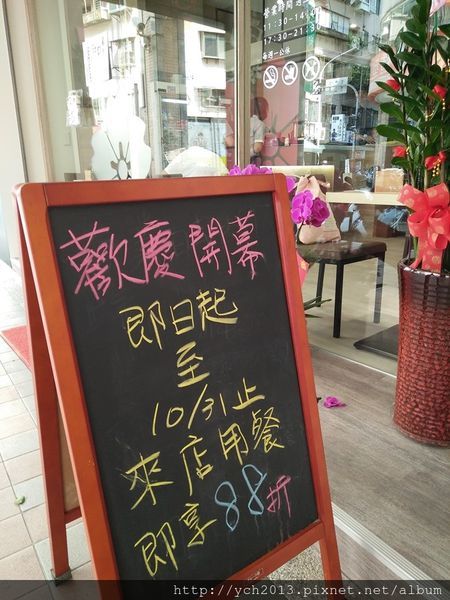 營業時間
11:30-14
17:30-21:3
每週一公休
歡慶開幕
即日起
至
10/31止
來店用餐
即享88折
http://ych2013.pixnet.net/album